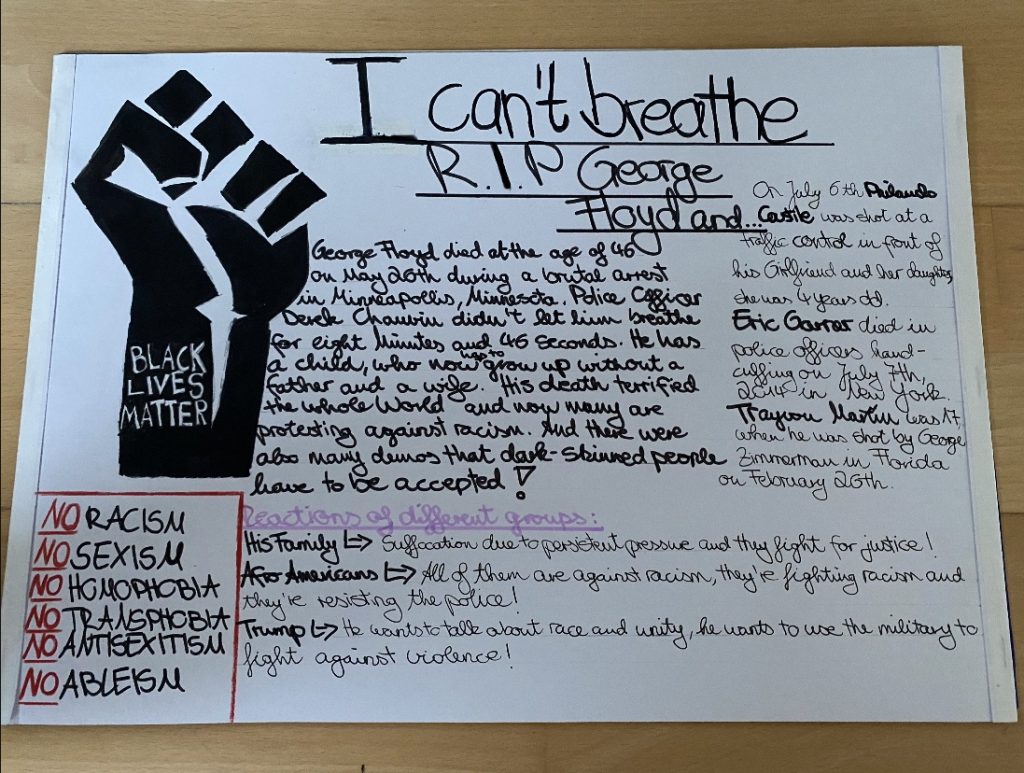 I can't breathe
R.I.P George
Floyd and...
George Floyd died at the age of 46
on May 26th during a brutal arrest
in Minneapolis, Minnesota. Police Officer
Derek Chauvin didn't let him breathe
for eight Minutes and 46 seconds. He has
a child, who now has to grow up without a
father and a wife. His death terrified
the whole World and now many are
protesting against racism. And there were
also many demos that dark-skinned people
have to be accepted!
On July 6th Philando
Castile was shot at a
traffic control in front of
his Girlfriend and her daughter,
she was 4 years old.
Eric Garner died in
police officers hand-
cuffing on July 7th,
2014 in New York.
Trayvon Martin was 17,
when he was shot by George
Zimmerman in Florida
on February 26th.
BLACK
LIVES
MATTER
NO RACISM
NO SEXISM
NO HOMOPHOBIA
NO TRANSPHOBIA
NO ANTISEXITISM
NO ABLEISM
Reactions of different groups:
His Family ↳ Suffocation due to persistent pressure and they fight for justice!
Afro Americans ↳ All of them are against racism, they're fighting racism and
they're resisting the police!
Trump ↳ He wants to talk about race and unity, he wants to use the military to
fight against violence!